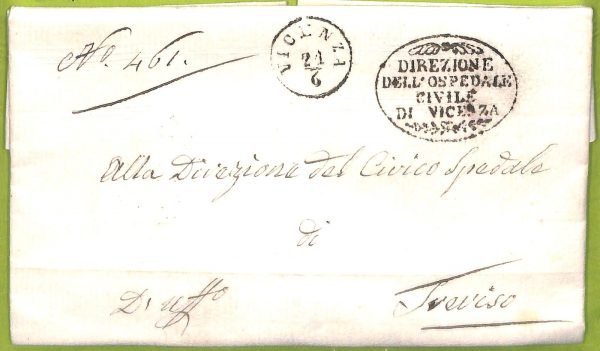 No. 461.
VICENZA
21
6
DIREZIONE
DELL'OSPEDALE
CIVILE
DI VICENZA
Alla Direzione del Civico Spedale
di
D'uffo
Treviso